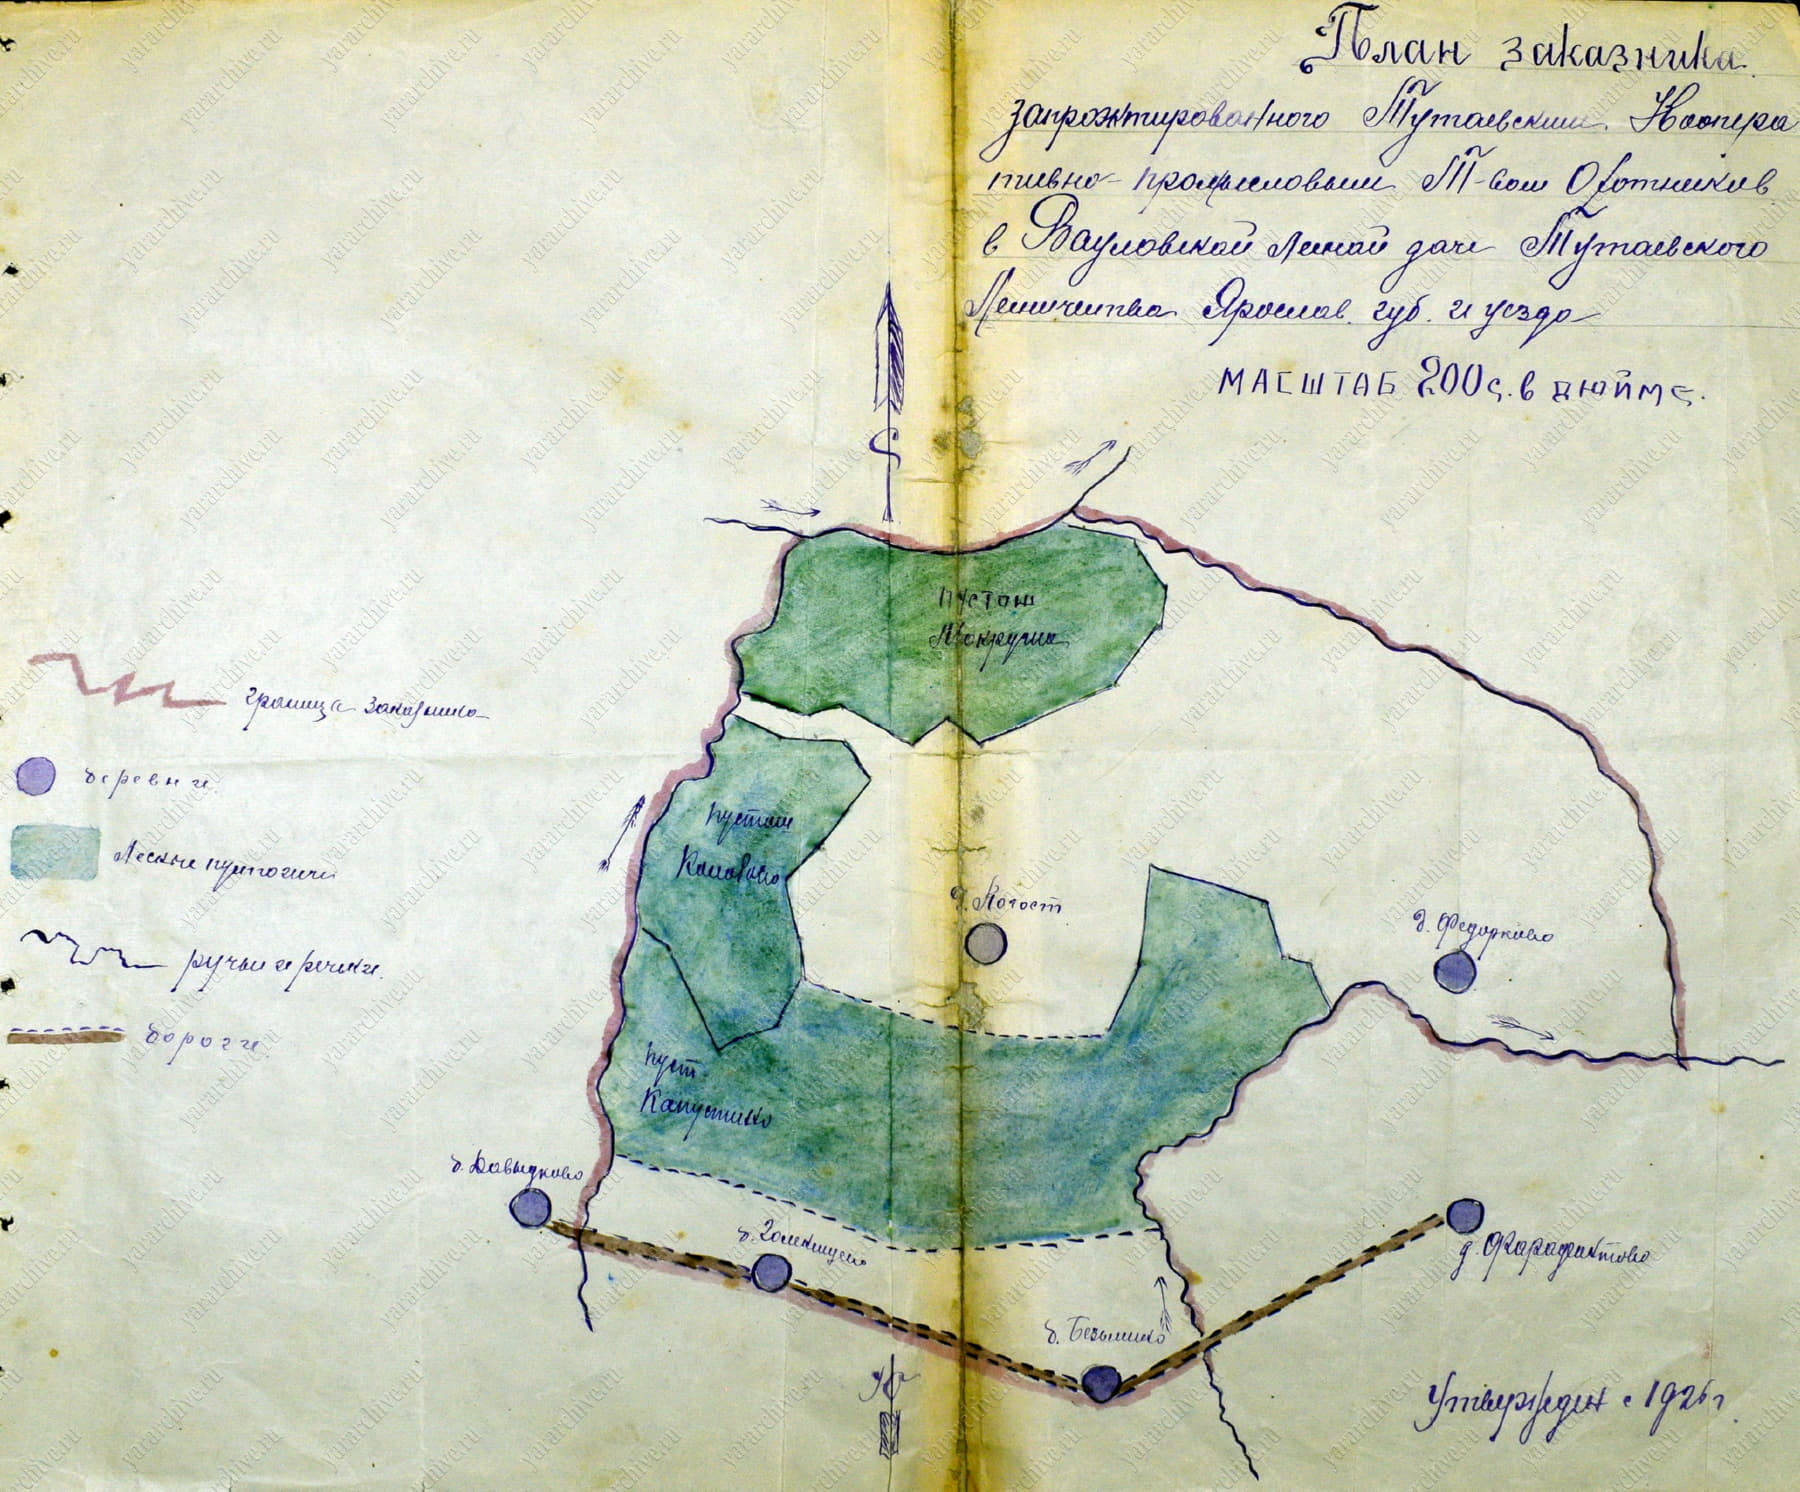 План заказника
запроэктированного Тутаевским Коопера
тивно-промысловым Т-вом Охотников
в Вауловской Лесной даче Тутаевского
Лесничества Ярослав. губ. и уезда
МАСШТАБ 200 с. в дюйме.
С
пустош
Мокруша
граница заказника
деревни.
пустош
Лесные пустоши
д. Погост
д. Федорково
ручьи и речки.
дороги.
пуст.
Капустино
д. Давыдково
д. Голенищево
д. Безьмино
Ю
Утвержден с 1926 г.
yararchive.ru